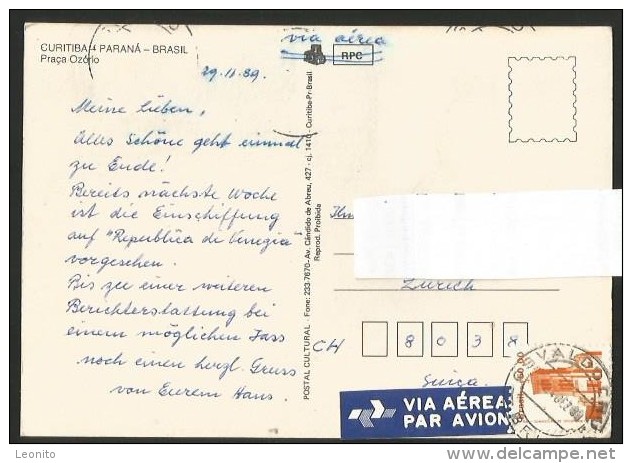 CURITIBA - PARANÁ – BRASIL
Praça Ozório
via aérea
RPC
29.11.89.
Meine Lieben,
Alles Schöne geht einmal
zu Ende!
Bereits nächste Woche
ist die Einschiffung
auf "Republica de Venezia"
vorgesehen.
Bis zu einer weiteren
Berichterstattung bei
einem möglichen Jass
noch einen herzl. Gruss
von Eurem Hans.
POSTAL CULTURAL - Fone: 233-7670 - Av. Cândido de Abreu, 427 - cj. 1410 - Curitiba-Pr-Brasil
Reprod. Proibida
Zürich
CH 8038
Suiça.
VIA AÉREA
PAR AVION
www.delcampe.net